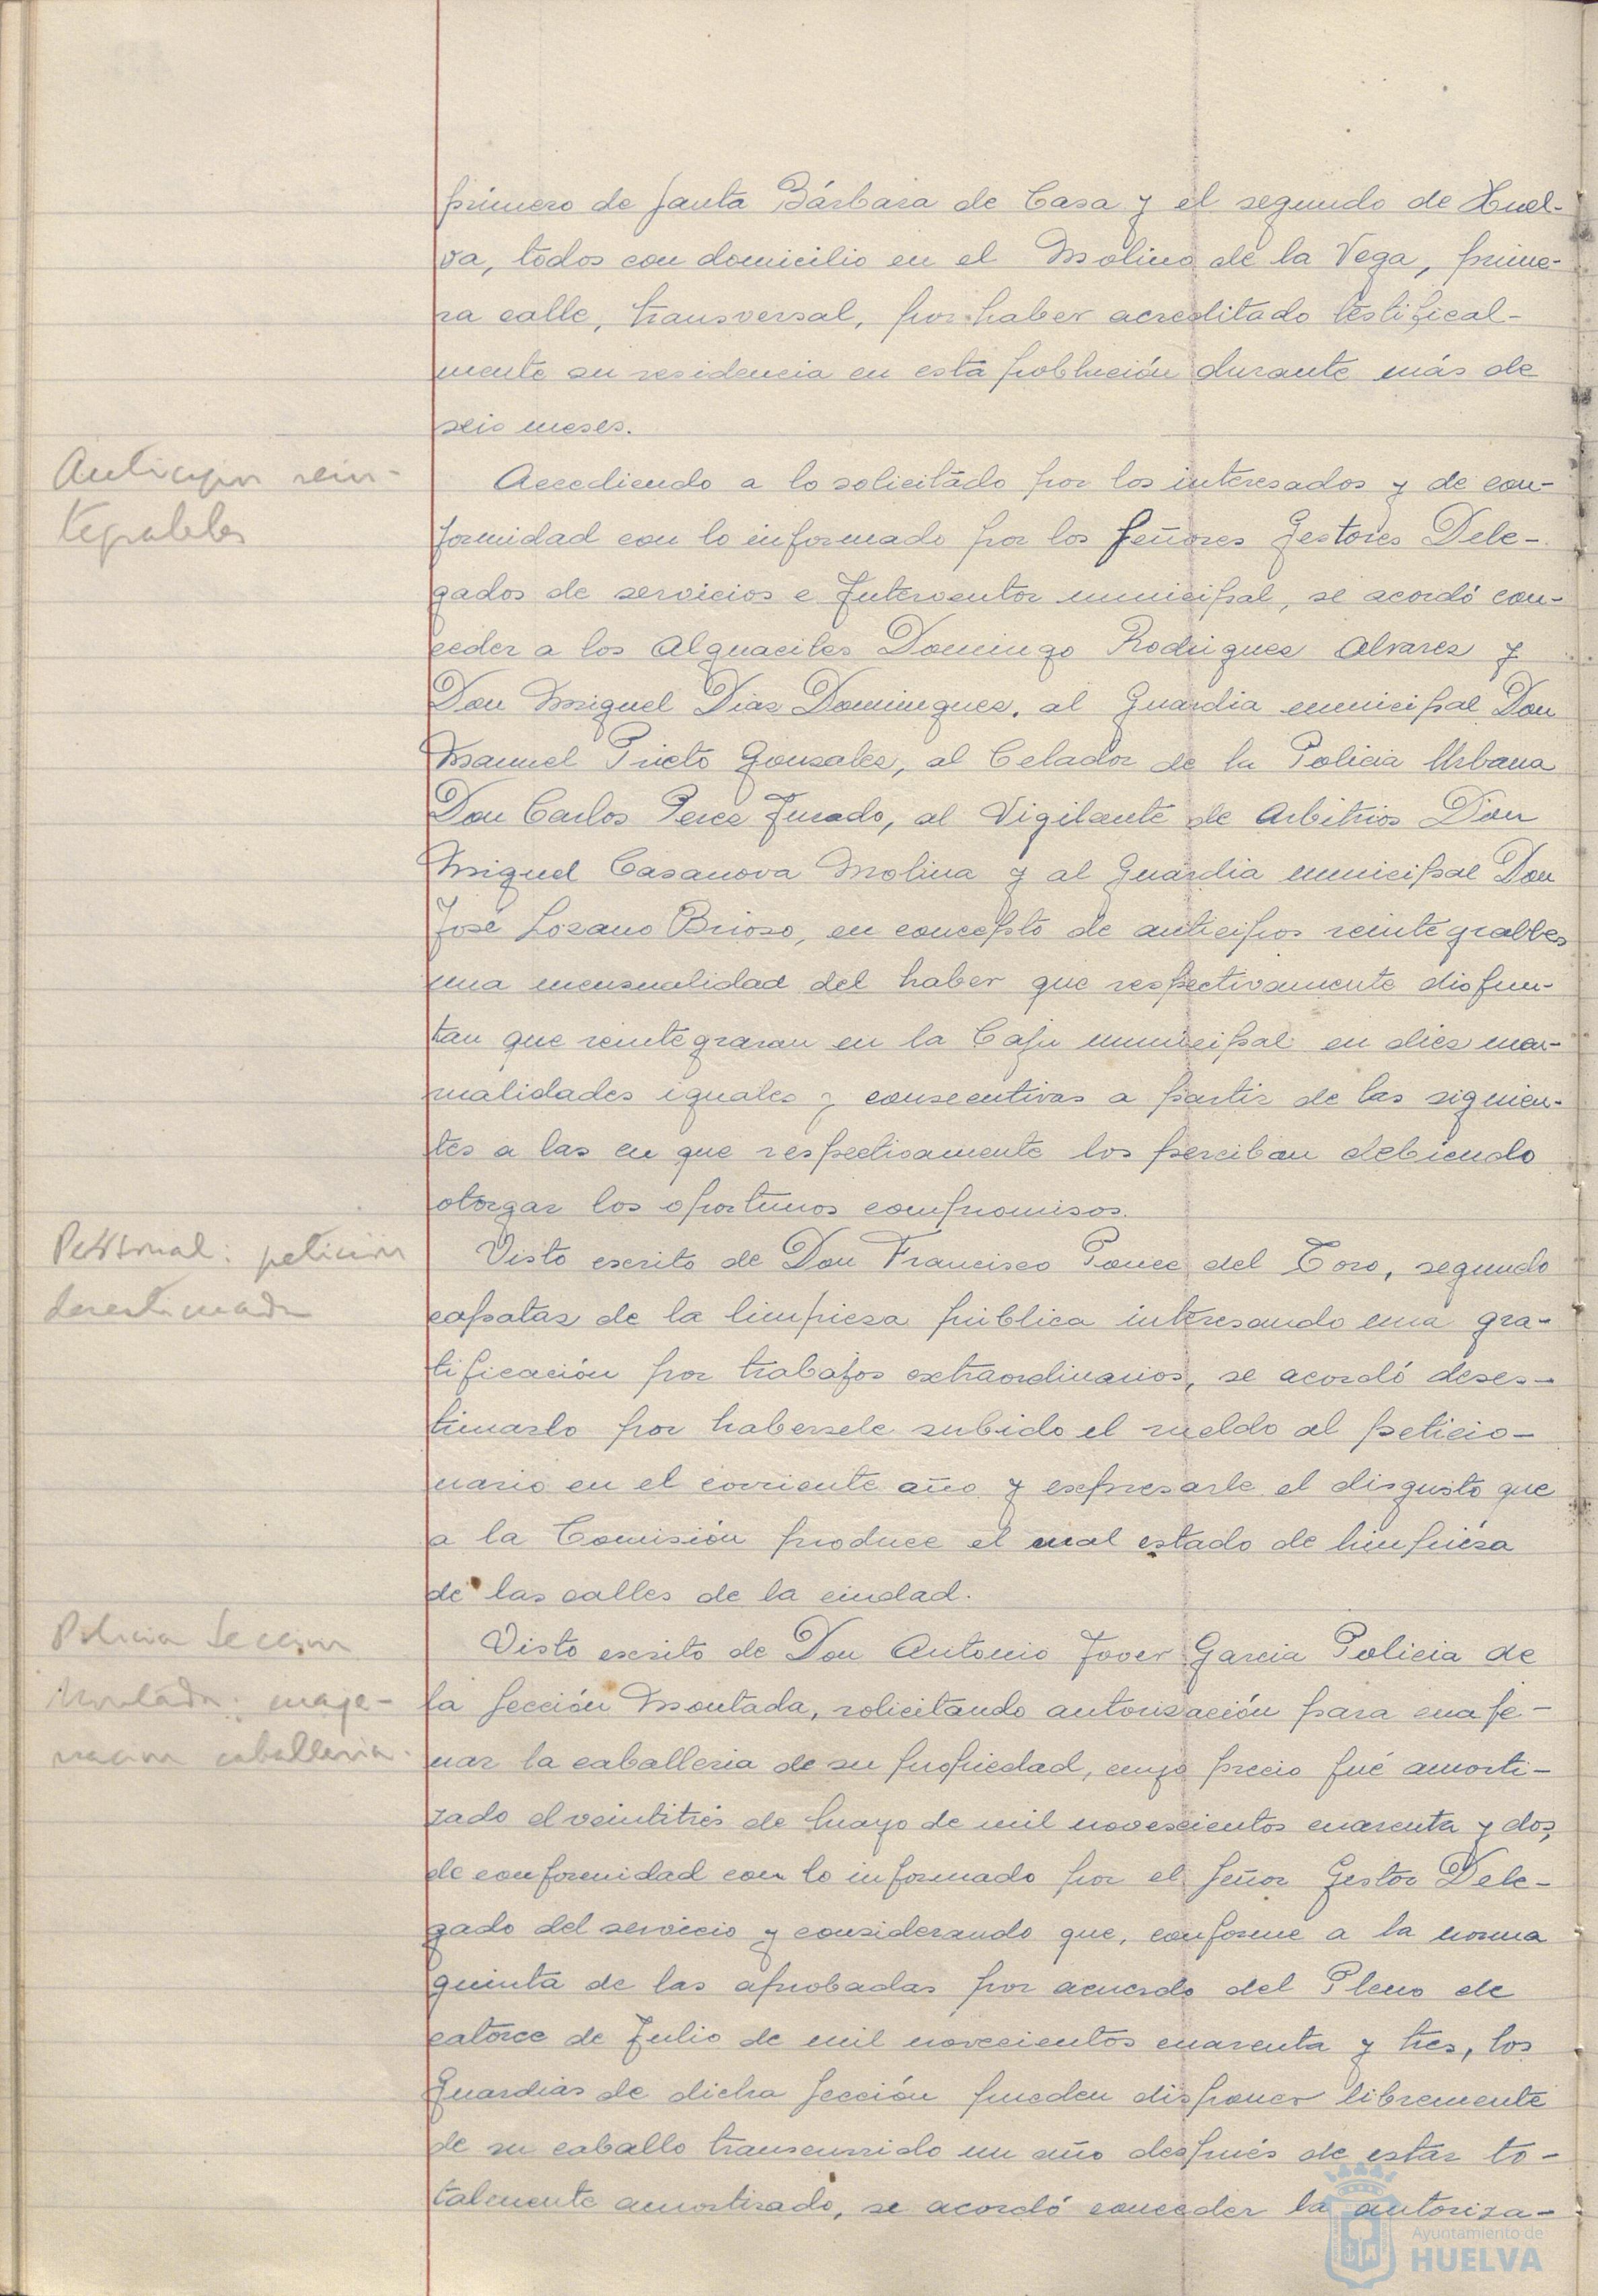 primero de Santa Bárbara de Casa y el segundo de Huel-
va, todos con domicilio en el Molino de la Vega, prime-
ra calle, transversal, por haber acreditado testifical-
mente su residencia en esta poblución durante más de
seis meses.
Anticipos rein-
tegrables
Accediendo a lo solicitado por los interesados y de con-
formidad con lo informado por los Señores Gestores Dele-
gados de servicios e Interventor municipal, se acordó con-
ceder a los Alguaciles Domingo Rodrigues Alvarez y
Don Miguel Diaz Domingues, al Guardia municipal Don
Manuel Prieto Gonzales, al Celador de la Policia Urbana
Don Carlos Perez Jurado, al Vigilante de Arbitrios Don
Miguel Casanova Molina y al Guardia municipal Don
José Lozano Brioso, en concepto de anticipos reintegralbes
una mensualidad del haber que respectivamente disfru-
tan que reintegraran en la Caja municipal en diez men-
sualidades iguales y consecutivas a partir de las siguien-
tes a las en que respectivamente los perciban debiendo
otorgar los oportunos compromisos.
Personal: petición
desestimada
Visto escrito de Don Francisco Ponce del Toro, segundo
capataz de la limpieza pública interesando una gra-
tificación por trabajos extraordinarios, se acordó deses-
timarlo por habersele subido el sueldo al peticio-
nario en el corriente año y expresarle el disgusto que
a la Comisión produce el mal estado de limpieza
de las calles de la ciudad.
Policia Seccion
Montada: enaje-
nacion caballeria.
Visto escrito de Don Antonio Jover Garcia Policia de
la Sección Montada, solicitando autorización para enaje-
nar la caballeria de su propiedad, cuyo precio fué amorti-
zado el veintitrés de Mayo de mil novescientos cuarenta y dos,
de conformidad con lo informado por el Señor Gestor Dele-
gado del servicio y considerando que, conforme a la norma
quinta de las aprobadas por acuerdo del Pleno de
catorce de Julio de mil novecientos cuarenta y tres, los
Guardias de dicha Sección pueden disponer libremente
de su caballo transcurrido un año después de estar to-
talmente amortizado, se acordó conceder la autoriza-
Ayuntamiento de
HUELVA